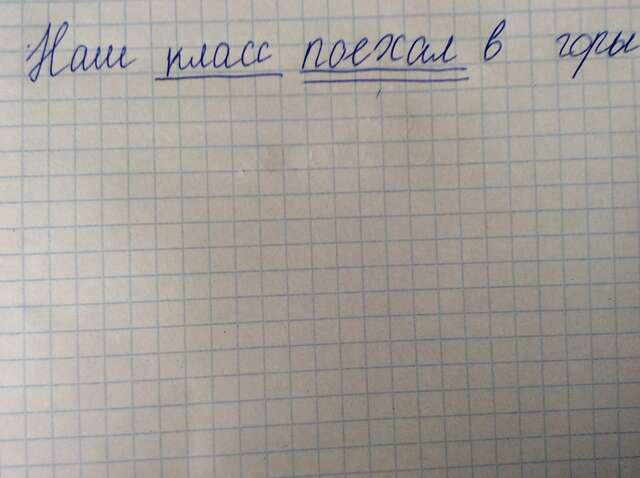 Наш класс поехал в горы